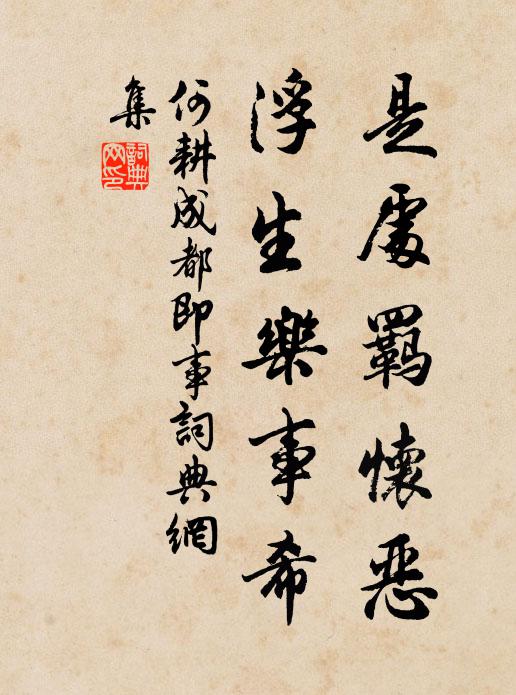 是處羈懷惡
浮生樂事希
何耕成都即事詞典網
集
詞典
網印